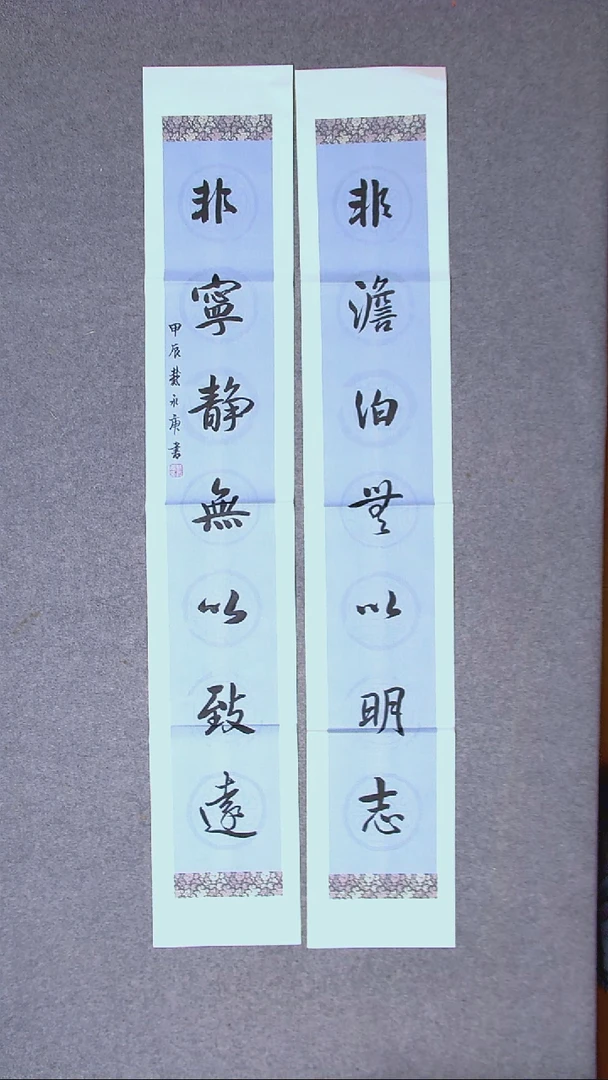 非澹泊無以明志
非寧靜無以致遠
甲辰龚永庚書